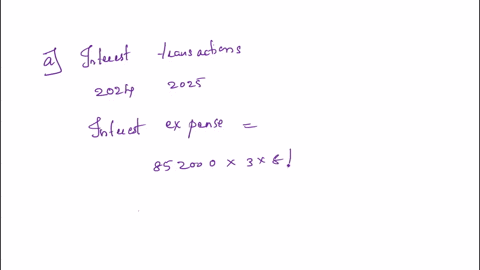 a] Interest transactions
2024 2025
Interest expense =
852000 × 3 × 6!